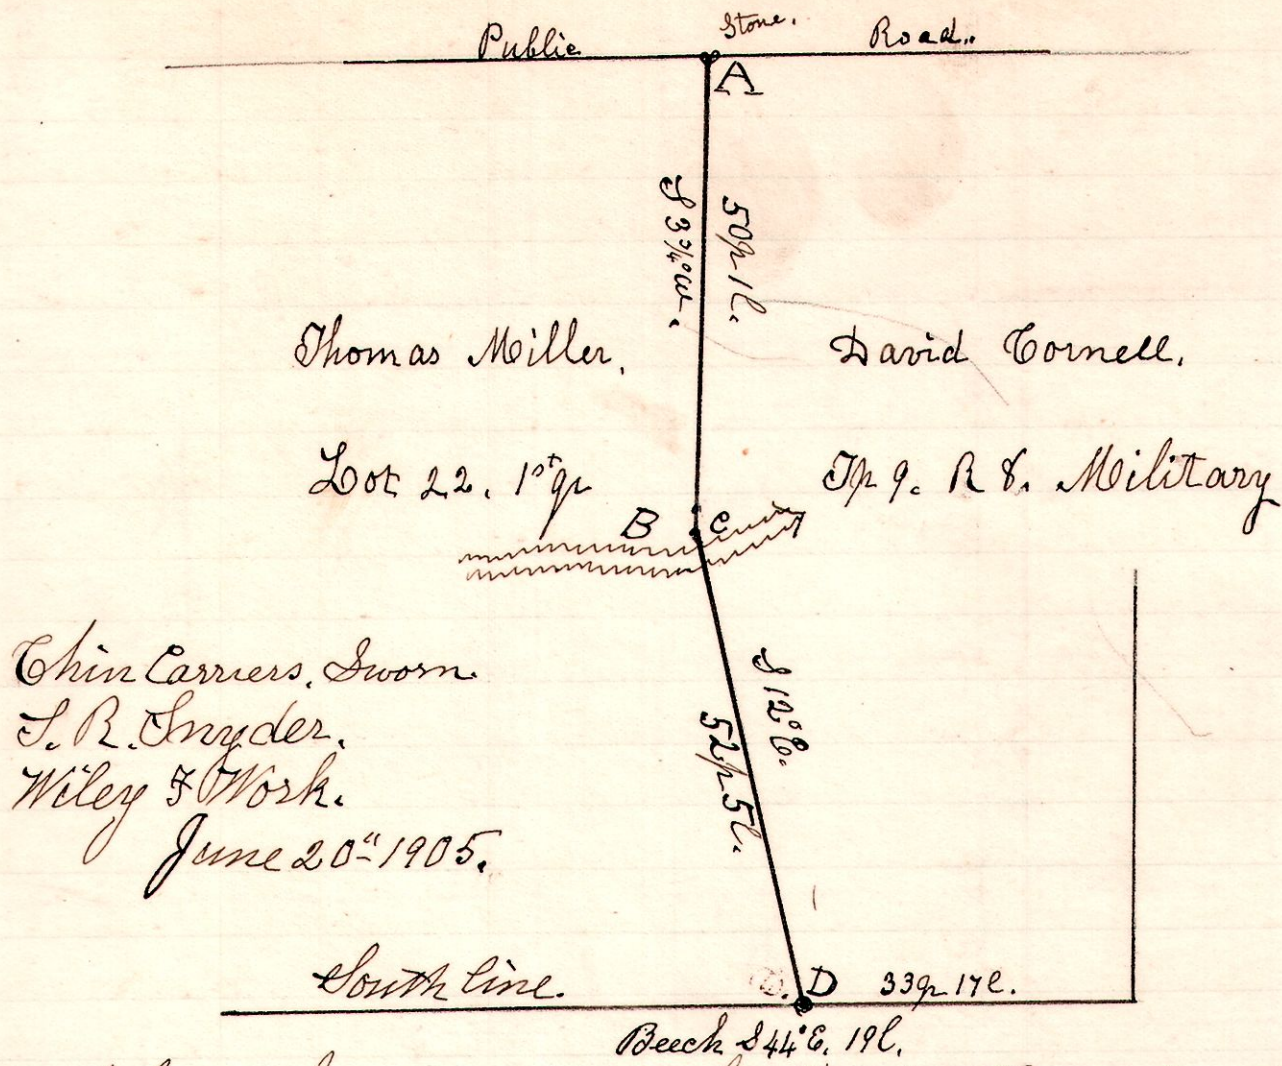 Stone.
Public Road.
A
S 3¾° W.
50p 1l.
Thomas Miller,
David Cornell.
Lot 22. 1st qr
Tp 9. R 8. Military
B C
Chin Carriers, Sworn.
S. R. Snyder.
Wiley F Work.
June 20" 1905.
S 12° E.
52p 5l.
South line.
D
33p 17l.
Beech S 44° E. 19l.